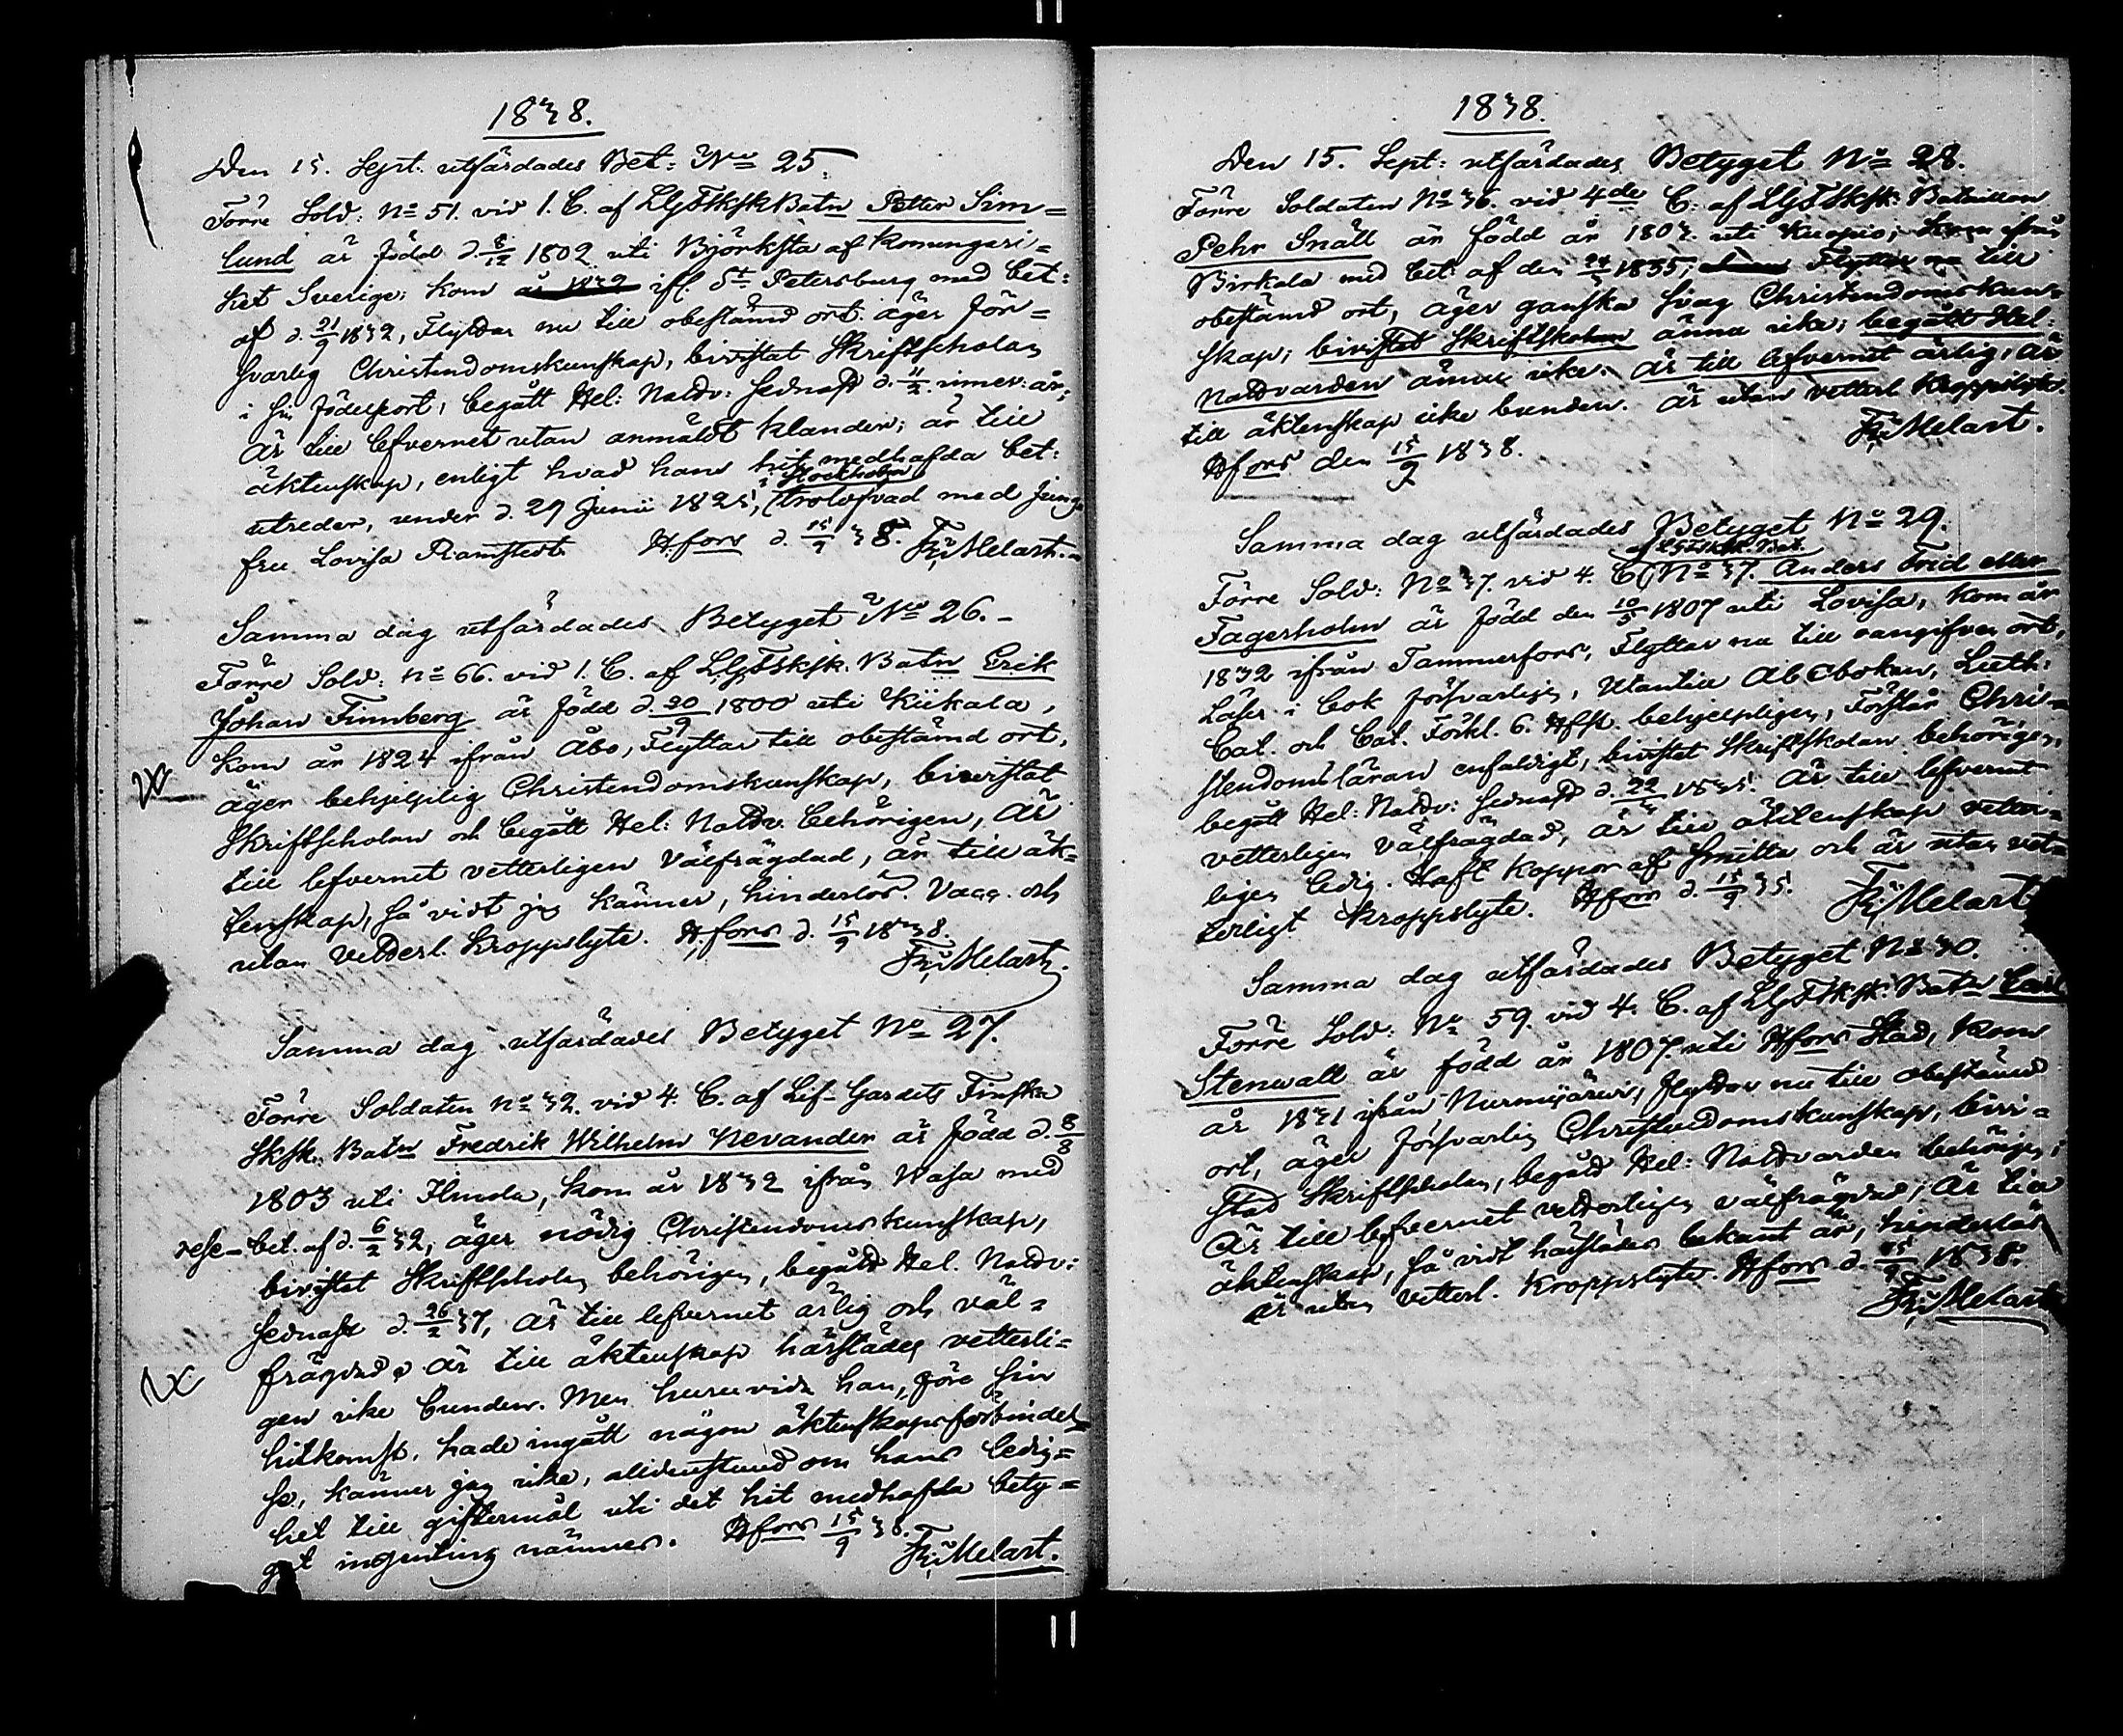 1838.
Den 15. Sept. utfärdades Bet: No 25.
Förre Sold: No 51. vid 1. C. af LGFSkskBatn Petter Sim=
lund är född d. 8/12 1802 uti Björksta af Konungari=
ket Sverige; kom år 1832 ifr. St Petersburg med bet:
af d. 21/9 1832, Flyttar nu till obestämd ort. äger för=
svarlig Christendomskunskap, bivistat Skriftscholan
i sin födelseort, begått Hel: Nattv: sednast d. 11/2 innev: år;
Är till lefvernet utan anmäldt klander; är till
äktenskap, enligt hvad hans hit medhafda bet:
i Stockholm
utreder, under d. 29 Junii 1825, trolofvad med Jung
fru Lovisa Ramstedt. Hfors d. 15/9 38. Fr: Melart.
Samma dag utfärdades Betyget No 26.
Förre Sold: No 66. vid 1. C. af LGFSksk. Batn Erik
Johan Finnberg är född d. 20/9 1800 uti Kiikala,
kom år 1824 ifrån Åbo, Flyttar till obestämd ort,
äger behjelplig Christendomskunskap, biverstat
Skriftscholan och begått Hel: Nattv. behörigen, Är
till lefvernet vetterligen välfrägdad, är till äk=
tenskap, så vidt jag känner, hinderlös. Vacc. och
utan vetterl. kroppslyte. H.fors d. 15/9 1838.
Fr: Melart.
Samma dag utfärdades Betyget No 27.
Förre Soldaten No 32. vid 4. C. af Lif-Gardets Finska
Sksk. Batn Fredrik Wilhelm Nevander är född d. 8/8
1803 uti Ilmola, kom år 1832 ifrån Wasa med
rese-bet. af d. 6/2 32, äger nödig Christendomskunskap,
bivistat Skriftscholan behörigen, begått Hel. Nattv:
sednast d. 26/2 37, Är till lefvernet ärlig och väl=
frägdad. är till äktenskap härstädes vetterli=
gen icke bunden. Men huruvida han, före sin
hitkomst, hade ingått någon äktenskapsförbindel=
se, känner jag icke, alldenstund om hans ledig=
het till giftermål uti det hit medhafda bety=
get ingenting nämnes. Hfors 15/9 38.
Fr: Melart.
1838.
Den 15. Sept: utfärdades Betyget No 28.
Förre Soldaten No 36. vid 4de C. af LGFSksk: Bataillon
Pehr Snäll är född år 1807. uti Kuopio; kom ifrån
Birkala med bet: af den 24/1 1835; Flyttar nu till
obestämd ort, äger ganska svag Christendomskun=
skap; bivistat Skriftskolan ännu icke; begått Hel:
Nattvarden ännu icke. är till lefvernet ärlig, är
till äktenskap icke bunden. är utan vetterl. kroppslyte.
Hfors den 15/9 1838. Fr: Melart.
Samma dag utfärdades Betyget No 29.
af LGFSksk. Bat.
Förre Sold: No 37. vid 4. C. No 37. Anders Frid eller
Fagerholm är född den 10/5 1807 uti Lovisa, kom år
1832 ifrån Tammerfors, Flyttar nu till oangifven ort,
Läser i bok försvarligen, Utantill Abcboken, Luth:
Cat. och Cat. Förkl. 6. Hfst. behjelpligen, Förstår Chri=
stendomsläran enfaldigt, bivistat Skriftskolan behörigen,
begått Hel: Nattv: sednast d. 22/3 1835. Är till lefvernet
vetterligen välfrägdad, är till äktenskap vetter=
ligen ledig. Haft koppor af smitta och är utan vet=
terligt kroppslyte. Hfors d. 15/9 35.
Fr: Melart
Samma dag utfärdades Betyget No 30.
Förre Sold: No 59. vid 4. C. af LGFSksk: Batn Carl
Stenwall är född år 1807. uti Hfors Stad, kom
år 1831 ifrån Nurmijärvi, flyttar nu till obestämd
ort, äger försvarlig Christendomskunskap, bivi=
stad Skriftscholan, begått Hel: Nattvarden behörigen;
Är till lefvernet vetterligen välfrägdad; Är till
äktenskap, så vidt härstädes bekant är, hinderlös
är utan vetterl. kroppslyte. Hfors d. 15/9 1838.
Fr: Melart